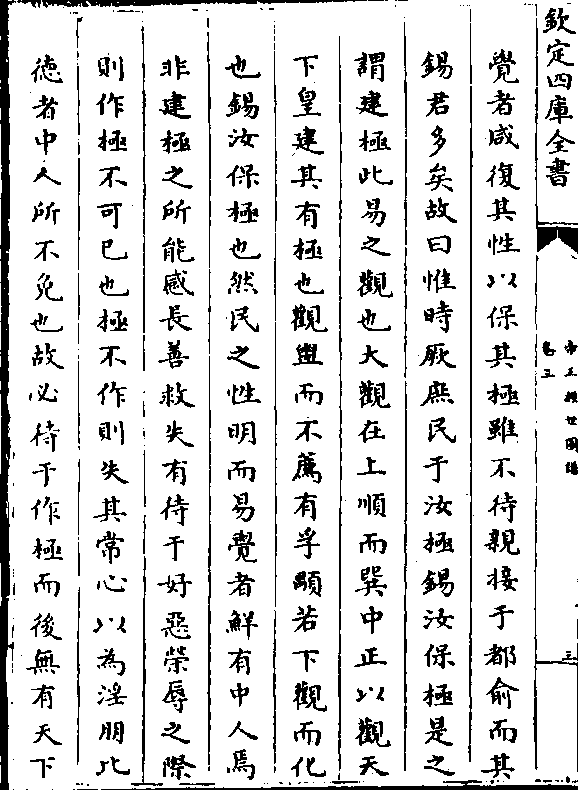 欽定四庫全書
帝王經世圖譜
卷三
三
覺者咸復其性以保其極雖不待親接于都俞而其
錫君多矣故曰惟時厥庶民于汝極錫汝保極是之
謂建極此易之觀也大觀在上順而巽中正以觀天
下皇建其有極也觀盥而不薦有孚顒若下觀而化
也錫汝保極也然民之性明而易覺者鮮有中人焉
非建極之所能感長善救失有待于好惡榮辱之際
則作極不可已也極不作則失其常心以為淫朋比
德者中人所不免也故必待于作極而後無有天下